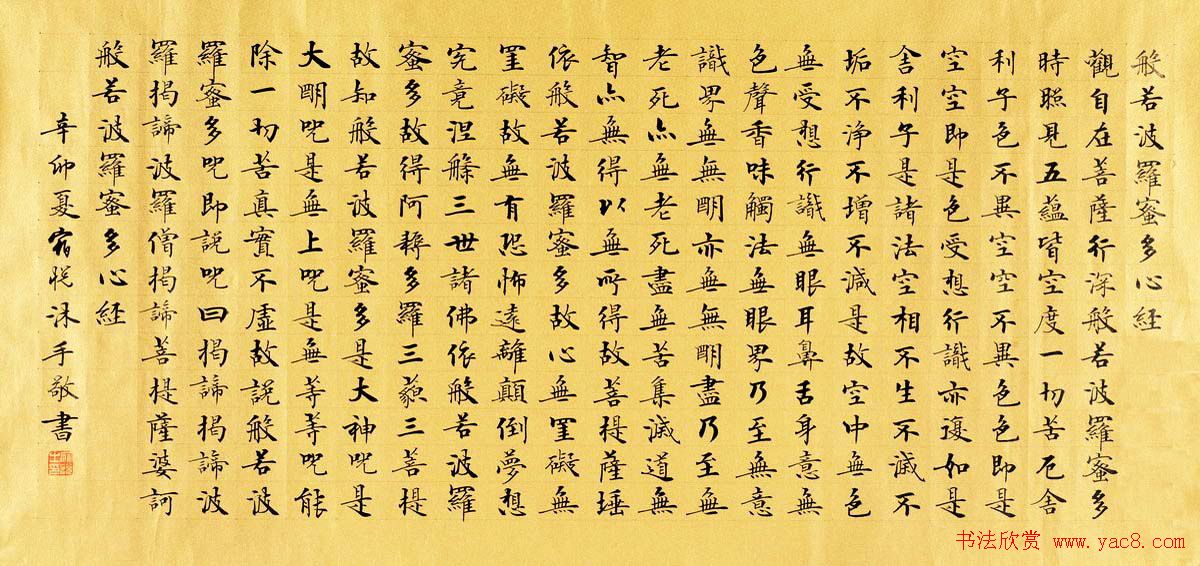 般若波羅蜜多心経
觀自在菩薩行深般若波羅蜜多
時照見五蘊皆空度一切苦厄舍
利子色不異空空不異色色即是
空空即是色受想行識亦復如是
舍利子是諸法空相不生不滅不
垢不淨不增不減是故空中無色
無受想行識無眼耳鼻舌身意無
色聲香味觸法無眼界乃至無意
識界無無明亦無無明盡乃至無
老死亦無老死盡無苦集滅道無
智亦無得以無所得故菩提薩埵
依般若波羅蜜多故心無罣礙無
罣礙故無有恐怖遠離顛倒夢想
究竟涅槃三世諸佛依般若波羅
蜜多故得阿耨多羅三藐三菩提
故知般若波羅蜜多是大神咒是
大明咒是無上咒是無等等咒能
除一切苦真實不虛故說般若波
羅蜜多咒即說咒曰揭諦揭諦波
羅揭諦波羅僧揭諦菩提薩婆訶
般若波羅蜜多心経
辛卯夏沐手敬書
书法欣赏 www.yac8.com